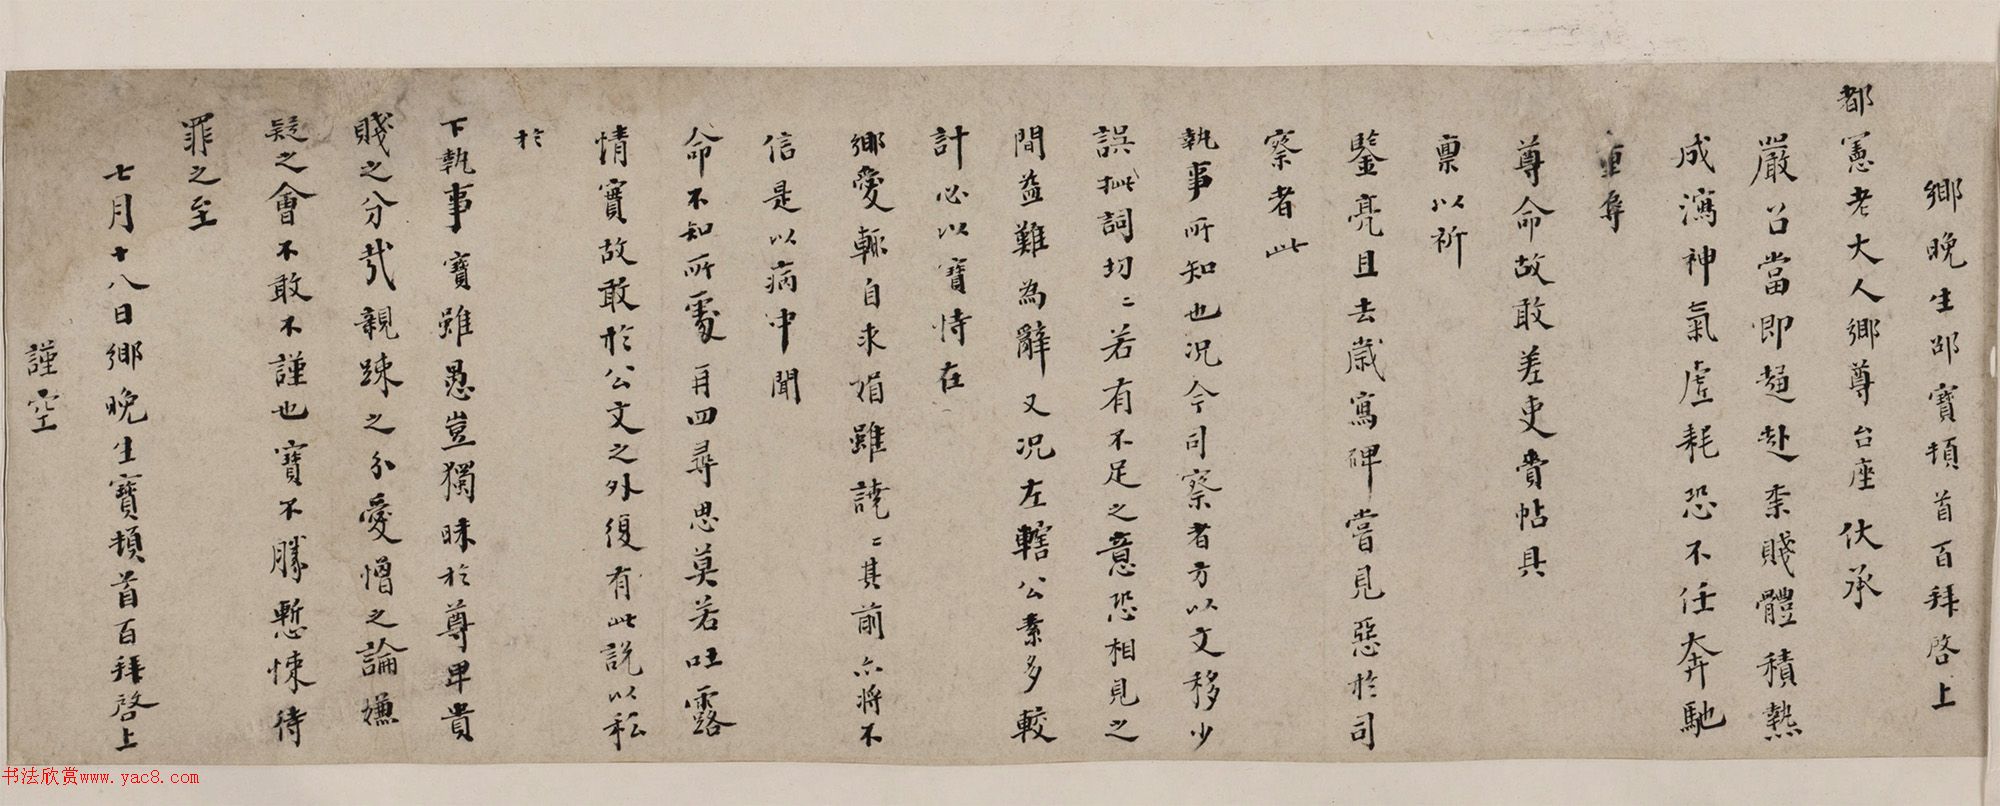 鄉晚生邵寶頓首百拜啓上
都憲老大人鄉尊台座伏承
嚴召當即趨赴柰賤體積熱
成瀉神氣虛耗恐不任奔馳
重辱
尊命故敢差吏賫帖具
稟以祈
鑒亮且去歲寫碑嘗見惡於司
察者此
執事所知也况今司察者方以文移少
誤摭詞切〻若有不足之意恐相見之
間益難為辭又况左轄公素多較
計必以寶恃在
鄉愛輒自求損雖諄〻其前亦將不
信是以病中聞
命不知所處再四尋思莫若吐露
情實故敢於公文之外復有此說以私
於
下執事寶雖愚豈獨昧於尊卑貴
賤之分哉親踈之分愛憎之論嫌
疑之會不敢不謹也寶不勝慙悚待
罪之至
七月十八日鄉晚生寶頓首百拜啓上
謹空
书法欣赏www.yac8.com